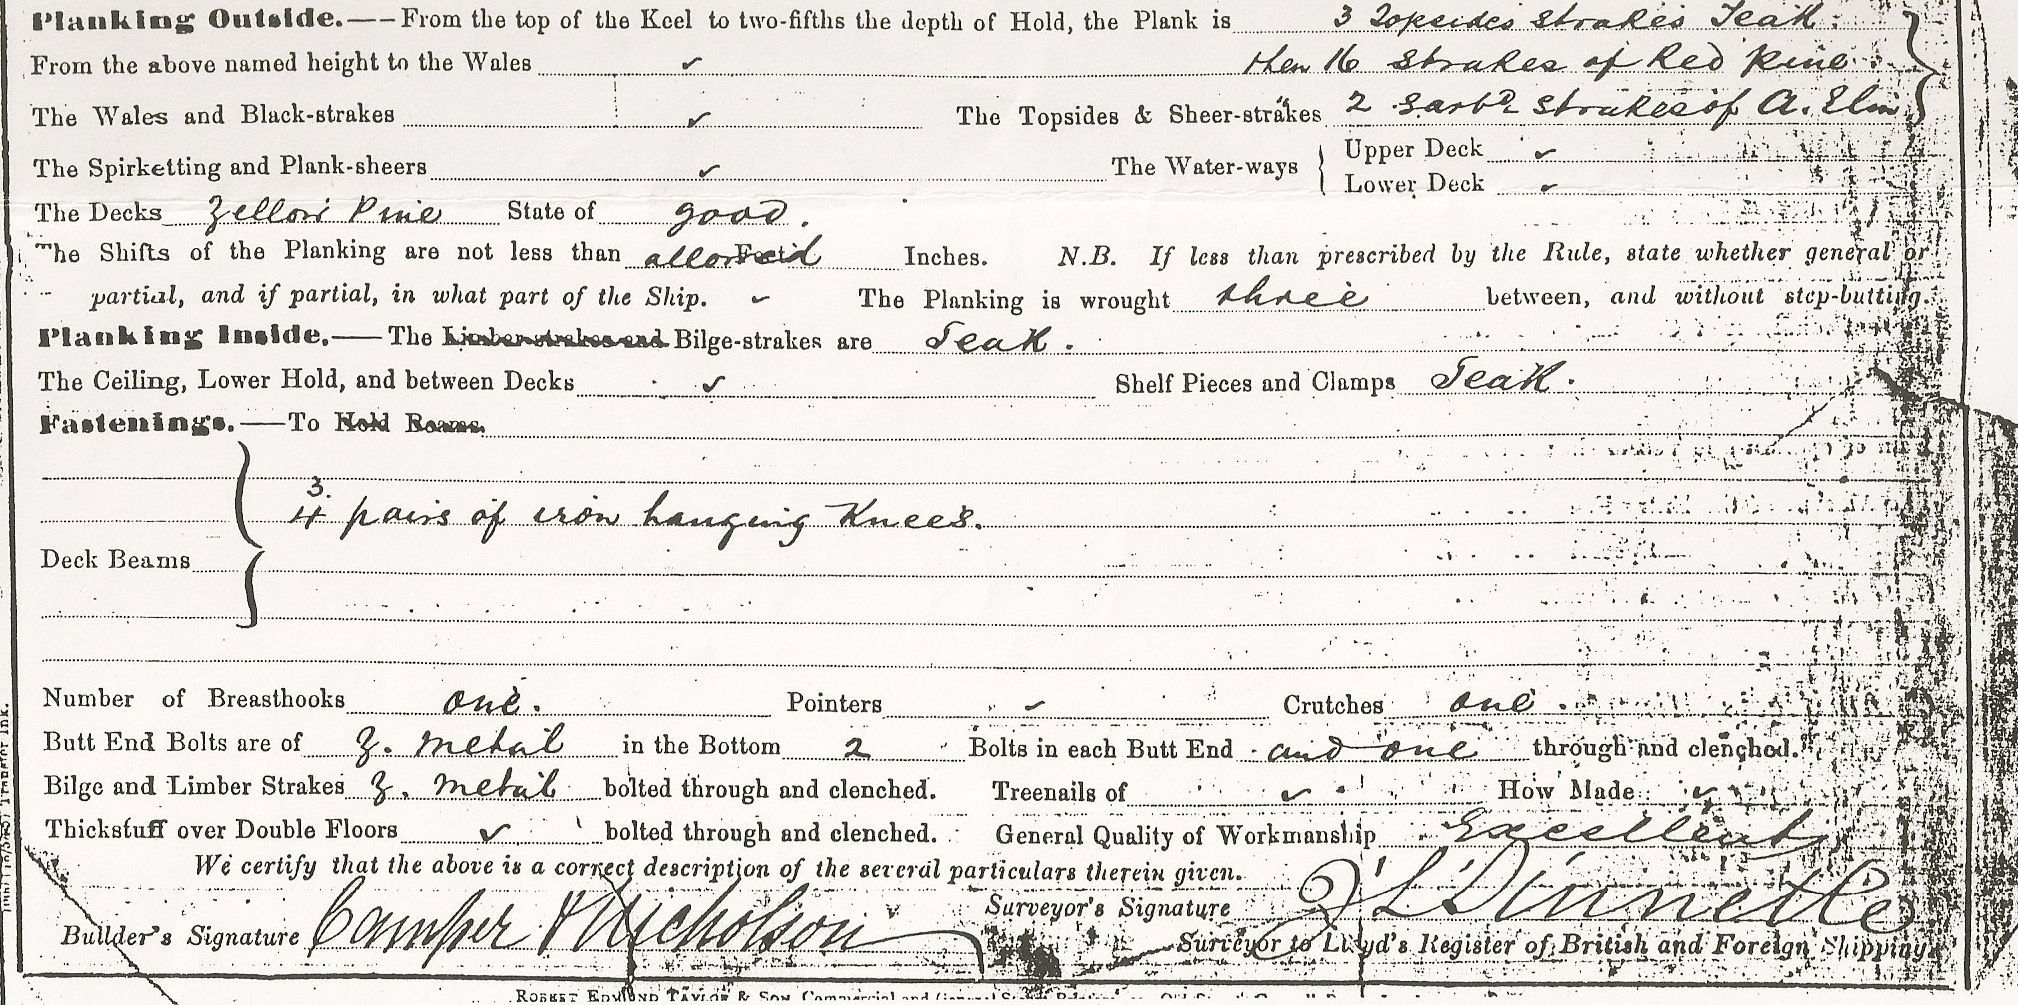 Planking Outside.——From the top of the Keel to two-fifths the depth of Hold, the Plank is 3 Topsides strakes Teak.
From the above named height to the Wales ✓ then 16 strakes of Red Pine
The Wales and Black-strakes ✓ The Topsides & Sheer-strakes 2 Garbd strakes of A. Elm
The Spirketting and Plank-sheers ✓ The Water-ways { Upper Deck ✓
Lower Deck ✓
The Decks Yellow Pine State of good.
The Shifts of the Planking are not less than allowed Feet Inches. N.B. If less than prescribed by the Rule, state whether general or
partial, and if partial, in what part of the Ship. ✓ The Planking is wrought three between, and without step-butting.
Planking Inside.——The Limber-strakes and Bilge-strakes are Teak.
The Ceiling, Lower Hold, and between Decks ✓ Shelf Pieces and Clamps Teak.
Fastenings.——To Hold Beams
3.
4 pairs of iron hanging Knees.
Deck Beams
Number of Breasthooks one. Pointers ✓ Crutches one.
Butt End Bolts are of Y. Metal in the Bottom 2 Bolts in each Butt End and one through and clenched.
Bilge and Limber Strakes Y. Metal bolted through and clenched. Treenails of ✓ How Made ✓
Thickstuff over Double Floors ✓ bolted through and clenched. General Quality of Workmanship Excellent
We certify that the above is a correct description of the several particulars therein given.
Builder's Signature Camper & Nicholson Surveyor's Signature
Surveyor to Lloyd's Register of British and Foreign Shipping
ROBERT EDMUND TAYLOR & SON